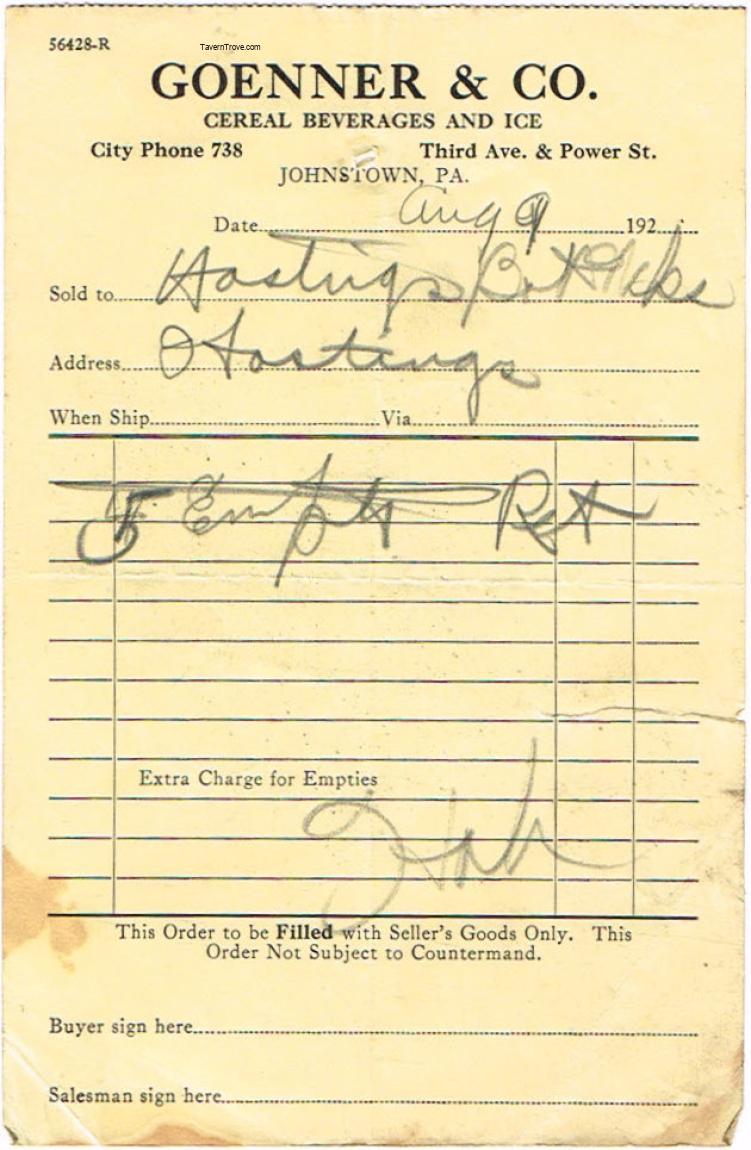 56428-R
TavernTrove.com
GOENNER & CO.
CEREAL BEVERAGES AND ICE
City Phone 738 Third Ave. & Power St.
JOHNSTOWN, PA.
Date Aug 9 192
Sold to Hastings Bot
Address Hastings
When Ship Via
5 Empts Ret
Extra Charge for Empties
This Order to be Filled with Seller's Goods Only. This
Order Not Subject to Countermand.
Buyer sign here
Salesman sign here